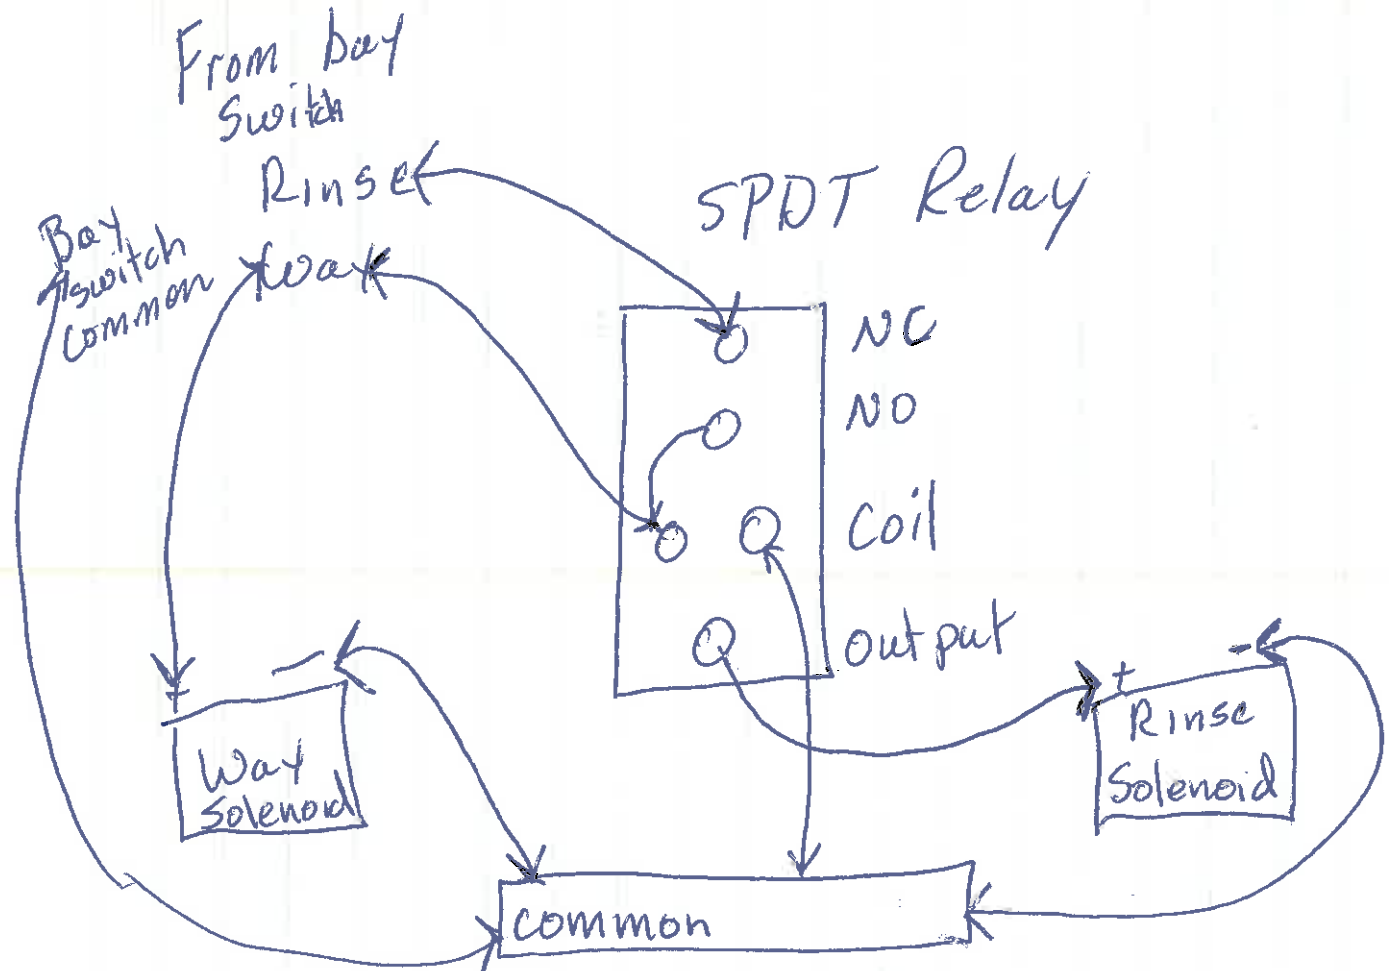 From bay
Switch
Rinse
Wax
Bay
switch
common
SPDT Relay
NC
NO
Coil
Output
+
-
Wax
Solenoid
+
-
Rinse
Solenoid
common